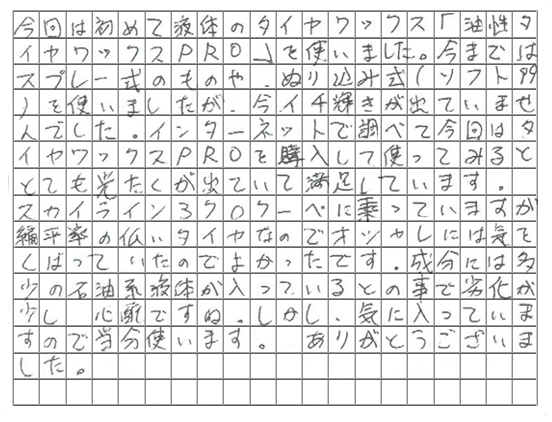 今回は初めて液体のタイヤワックス「油性タ
イヤワックスPRO」を使いました。今までは
スプレー式のものや、ぬり込み式(ソフト99
)を使いましたが、今イチ輝きが出ていませ
んでした。インターネットで調べて今回はタ
イヤワックスPROを購入して使ってみると
とても光たくが出ていて満足しています。
スカイライン370クーペに乗っていますが
編平率の低いタイヤなのでオシャレには気を
くばっていたのでよかったです。成分には多
少の石油系液体が入っているとの事で劣化が
少し 心配ですね。しかし、気に入っていま
すので当分使います。 ありがとうございま
した。